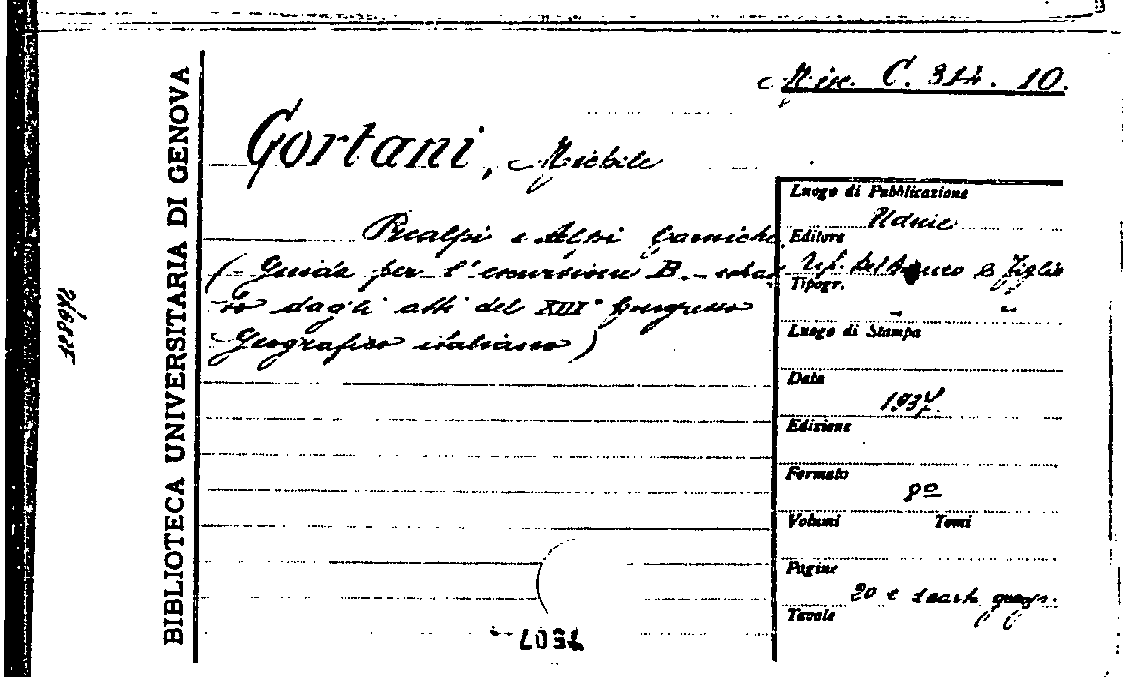 Misc. C. 314. 10.
BIBLIOTECA UNIVERSITARIA DI GENOVA
Gortani, Michele
Prealpi e Alpi Carniche
(Guida per l'escursione B. - estrat
to dagli atti del XIII° Congresso
Geografico italiano)
Luogo di Pubblicazione
Udine
Editore
Tip. Del Bianco e Figlio
Tipogr.
Luogo di Stampa
Data
1937.
Edizione
Formato
8º
Volumi Tomi
Pagine
20 e 1 carta geogr.
Tavole